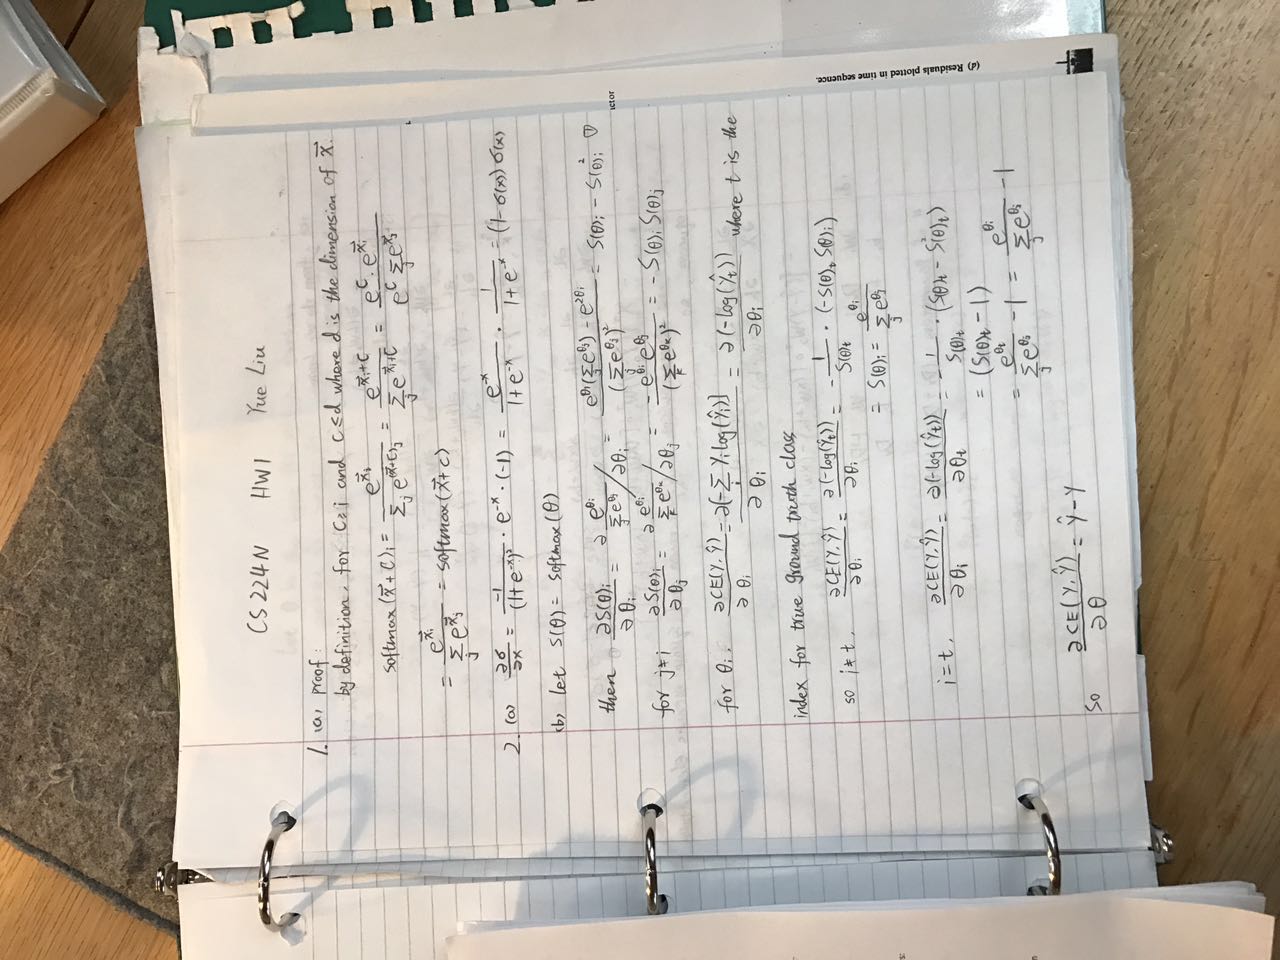 CS224N HW1 Yue Liu
1. (a) proof:
by definition, for 1≤i and i≤d where d is the dimension of $\vec{x}$.
softmax($\vec{x}$ + C)ᵢ = $\frac{e^{\vec{x}_i}}{\sum_j e^{(\vec{x}+c)_j}}$ = $\frac{e^{\vec{x}_i+c}}{\sum_j e^{\vec{x}_i+c}}$ = $\frac{e^c \cdot e^{\vec{x}_i}}{e^c \sum_j e^{\vec{x}_j}}$
= $\frac{e^{\vec{x}_i}}{\sum_j e^{\vec{x}_j}}$ = softmax($\vec{x}$ + c)
2. (a) $\frac{\partial σ}{\partial x}$ = $\frac{-1}{(1+e^{-x})^2}$ · $e^{-x}$ · (-1) = $\frac{e^{-x}}{1+e^{-x}}$ · $\frac{1}{1+e^{-x}}$ = (1-σ(x)) σ(x)
(b). let S(θ) = softmax(θ)
then $\frac{\partial S(θ)_i}{\partial θ_i}$ = ∂ $\frac{e^{θ_i}}{\sum_j e^{θ_j}}$ / ∂θᵢ = $\frac{e^{θ_i}(\sum_j e^{θ_j}) - e^{2θ_i}}{(\sum_j e^{θ_j})^2}$ = S(θ)ᵢ - S(θ)ᵢ² ▽
for j≠i $\frac{\partial S(θ)_i}{\partial θ_j}$ = ∂ $\frac{e^{θ_i}}{\sum_k e^{θ_k}}$ / ∂θⱼ = - $\frac{e^{θ_i} e^{θ_j}}{(\sum_k e^{θ_k})^2}$ = -S(θ)ᵢ S(θ)ⱼ
for θᵢ. $\frac{\partial CE(Y,\hat{Y})}{\partial θ_i}$ = $\frac{\partial(-\sum_i Y_i \log(\hat{Y}_i))}{\partial θ_i}$ = $\frac{\partial(-\log(\hat{Y}_t))}{\partial θ_i}$ where t is the
index for true ground truth class
so i≠t, $\frac{\partial CE(Y,\hat{Y})}{\partial θ_i}$ = $\frac{\partial(-\log(\hat{Y}_t))}{\partial θ_i}$ = - $\frac{1}{S(θ)_t}$ · (-S(θ)ₜ S(θ)ᵢ)
= S(θ)ᵢ = $\frac{e^{θ_i}}{\sum_j e^{θ_j}}$
i=t, $\frac{\partial CE(Y,\hat{Y})}{\partial θ_i}$ = $\frac{\partial(-\log(\hat{Y}_t))}{\partial θ_t}$ = - $\frac{1}{S(θ)_t}$ · (S(θ)ₜ - S(θ)ₜ²)
= (S(θ)ₜ - 1)
= $\frac{e^{θ_t}}{\sum_j e^{θ_j}}$ - 1 = $\frac{e^{θ_i}}{\sum_j e^{θ_j}}$ - 1
so $\frac{\partial CE(Y,\hat{Y})}{\partial θ}$ = $\hat{Y}$ - Y
(d) Residuals plotted in time sequence.
ictor